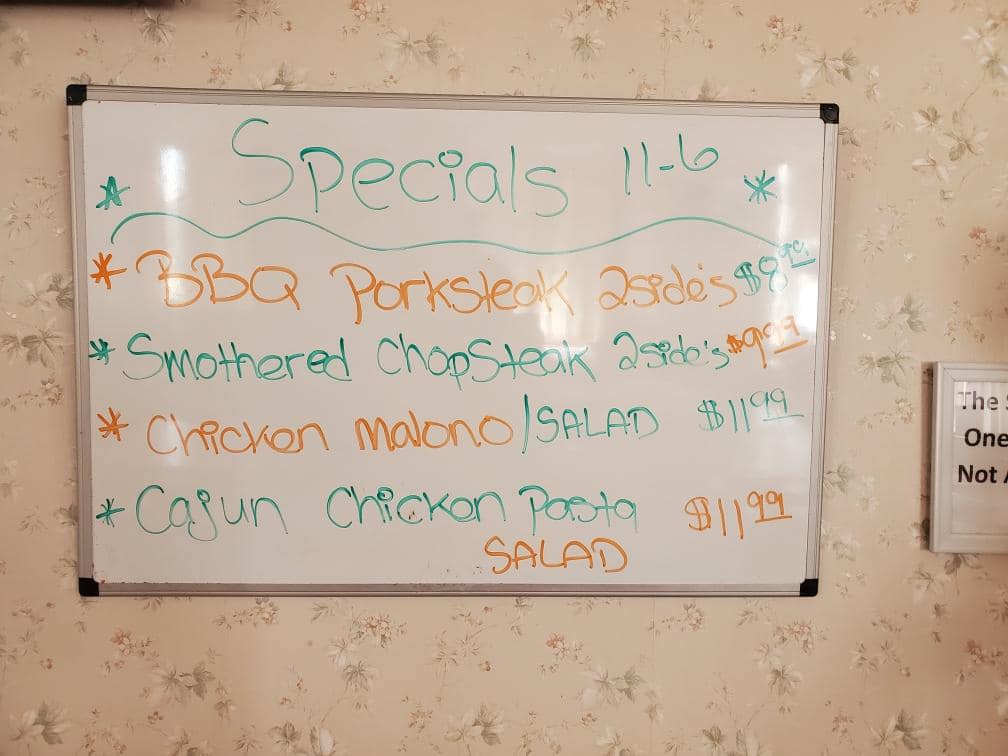 Specials 11-6
* BBQ Porksteak 2side's $8.99
* Smothered ChopSteak 2side's $9.99
* Chicken Malono/SALAD $11.99
* Cajun Chicken Pasta $11.99
SALAD
The
One
Not